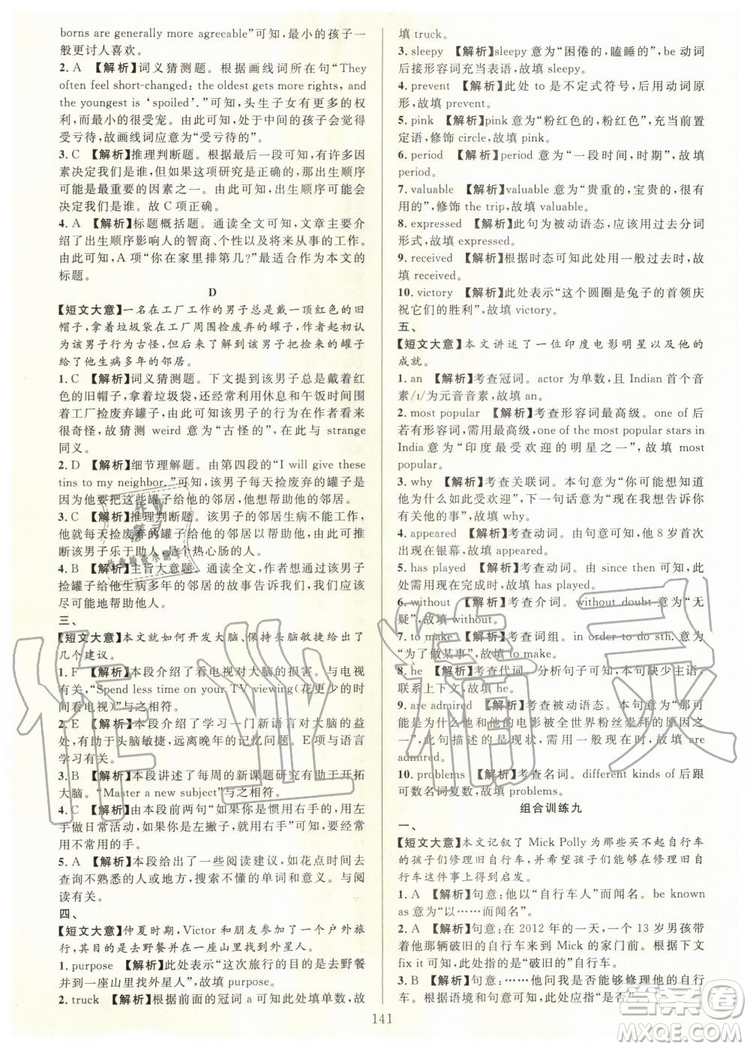 borns are generally more agreeable”可知，最小的孩子一
般更讨人喜欢。
2. A 【解析】词义猜测题。根据画线词所在句“They
often feel short-changed: the oldest gets more rights, and
the youngest is ‘spoiled’.”可知，头生子女有更多的权
利，而最小的很受宠爱。由此可知，中间的孩子会觉得
受亏待，故画线词应意为“受亏待的”。
3. C 【解析】推理判断题。根据最后一段可知，有许多因
素决定我们是谁，但是如果这项研究是正确的，出生顺
序可能是最重要的因素之一。由此可知，出生顺序可能
决定我们是谁。故 C 项正确。
4. A 【解析】标题概括题。通读全文可知，文章主要介
绍了出生顺序影响人的智商、个性以及将来从事的工作。
由此可知，A 项“你在家里排第几？”最适合作为本文的
标题。
D
【短文大意】一名在工厂工作的男子总是戴着一顶红色的旧
帽子，拿着垃圾袋在工厂周围捡废弃的罐子。作者最初认
为该男子行为古怪，后来才发现该男子是把捡来的罐子送
给他的生病多年的邻居。
1. C 【解析】词义猜测题。下文提到该男子总是戴着红
色的旧帽子，拿着垃圾袋，利用休息和午饭时间在工厂
周围捡废弃罐子。由此可知，该男子的行为在作者看来
很奇怪，故猜测 weird 意为“古怪的”，与 strange
同义。
2. D 【解析】细节理解题。由第四段的“I will give these
tins to my neighbor.”可知，该男子每天捡废弃的罐子
是为了把这些罐子给他的邻居。
3. B 【解析】推理判断题。该男子的邻居生病不能工作，
他每天捡废弃的罐子给他的邻居以帮助他们。由此推断
该男子乐于助人，故 B 项正确。
4. D 【解析】主旨大意题。通读全文可知，作者通过该男子
捡罐子给他生病多年的邻居的故事告诉我们，我们应该
尽可能地帮助他人。
三、
【短文大意】本文就如何开发大脑、保持头脑敏捷给出了
几个建议。
1. F 【解析】本段介绍了看电视对大脑的损害。与电视
有关，“Spend less time on your TV viewing(花更少的时
间看电视)”与之相符。
2. E 【解析】本段介绍了学习一门新语言对大脑的益
处，有助于头脑敏捷，远离晚年的记忆问题。E项与语言
学习有关。
3. B 【解析】本段讲述了每周的新课题研究有助于开拓
大脑。“Master a new subject”与之相符。
4. C 【解析】由本段前两句“如果你是惯用右手的，
花点时间使用左手。如果你是左撇子，花些时间使用
右手”可知答案。
5. A 【解析】本段介绍了一些阅读建议，如花点时间去
查阅不熟悉的人或地方，查看不知道的单词和习语。与
阅读有关。
四、
【短文大意】仲夏时期，Victor 和朋友参加了一个户外旅
行，其真正的目的是去野餐并在山里找到外星人。
1. purpose 【解析】此处表示“这次旅行的目的是去野餐
并在山里找到外星人”，故填 purpose。
2. truck 【解析】根据前面的冠词 a 可知此处填单数，故
填 truck。
3. sleepy 【解析】sleepy 意为“困倦的，瞌睡的”，be 动词
后接形容词充当表语，故填 sleepy。
4. prevent 【解析】此处 to 是不定式符号，后接动词原
形，故填 prevent。
5. pink 【解析】pink 意为“粉红色的，粉色的”，充当前置
定语，修饰 circle，故填 pink。
6. period 【解析】period 意为“一段时间，时期”，故填
period。
7. valuable 【解析】valuable 意为“贵重的，宝贵的，很有
用的”，修饰 the trip，故填 valuable。
8. expressed 【解析】此句为被动语态，应该用过去分词
形式，故填 expressed。
9. received 【解析】根据时态可知此处用一般过去时，故
填 received。
10. victory 【解析】此处表示“这个圆圈是兔子的首领庆
祝它们的胜利”，故填 victory。
五、
【短文大意】本文讲述了一位印度电影明星以及他的
成就。
1. an 【解析】考查冠词。actor 为单数，且 Indian 首个音
素/ɪ/为元音，故填 an。
2. most popular 【解析】考查形容词最高级。one of 后
若有形容词，常用最高级。one of the most popular stars in
India 意为“印度最受欢迎的明星之一”，故填 most
popular。
3. why 【解析】考查关联词。根据后文可知，作者想知道
他为什么如此受欢迎，此句意为“现在我想告诉你
有关他的更多情况以及我为什么喜欢他”，故填 why。
4. appeared 【解析】考查动词。由句意可知，他 8 岁首次
出现在银幕，故填 appeared。
5. has played 【解析】考查时态。由 since then 可知，此
处需用现在完成时，故填 has played。
6. without 【解析】考查介词。without doubt 意为“无
疑”，故填 without。
7. to make 【解析】考查词组。in order to do sth. 意
为“为了做某事”，故填 to make。
8. he 【解析】考查代词。分析句子可知，本句缺少主语，
联系上下文可知，故填 he。
9. are admired 【解析】考查被动语态。此句意为“这
也是他和他的电影被全世界粉丝崇拜的原因之
一”，此句描述的是现状，需用现在时，故填 are
admired。
10. problems 【解析】考查名词。different kinds of 后跟可
数名词复数，故填 problems。
组合训练九
一、
【短文大意】本文记叙了 Mick Polly 为那些买不起自行车
的孩子们修理旧自行车，一个孩子从他修理旧自行车的故
事上得到了启发。
1. A 【解析】句意：他以“自行车人”而闻名。be known
as 意为“以……而闻名”。
2. C 【解析】句意：在 2012 年的一天，一个 13 岁男孩带
着他那辆破旧的自行车来到 Mick 的家门前。根据下文
fix it 可知，此处指的是“破旧的”自行车。
3. B 【解析】句意：男孩问他是否能够为他修理自行
车。根据语境和句意可知，此处应指“是否”。
141
作业精灵
答案圈
MXQE.COM